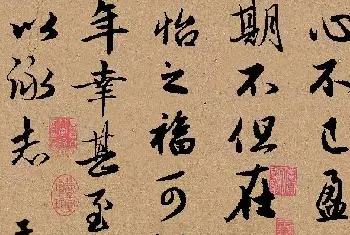 心不已盈
期不但在
怡之福可
年幸甚至
以詠志